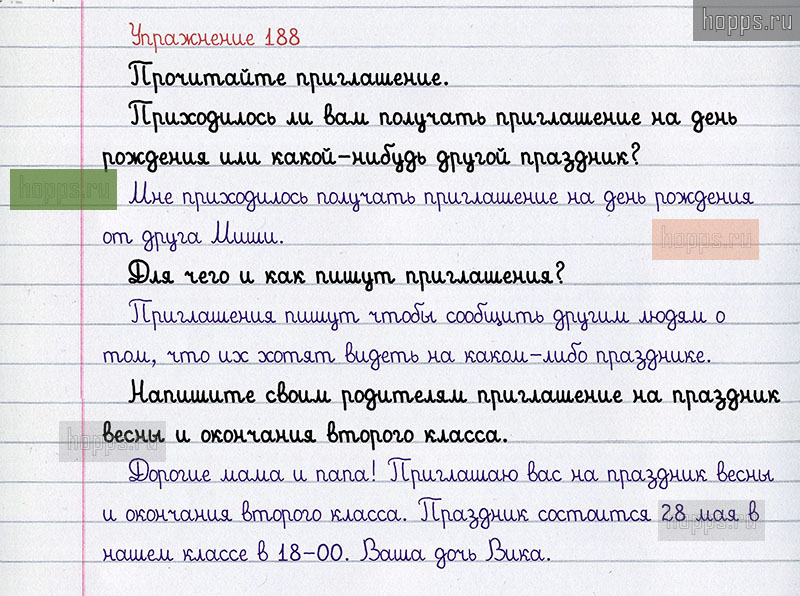 hopps.ru
Упражнение 188
Прочитайте приглашение.
Приходилось ли вам получать приглашение на день
рождения или какой-нибудь другой праздник?
hopps.ru
Мне приходилось получать приглашение на день рождения
от друга Миши.
hopps.ru
Для чего и как пишут приглашения?
Приглашения пишут чтобы сообщить другим людям о
том, что их хотят видеть на каком-либо празднике.
Напишите своим родителям приглашение на праздник
весны и окончания второго класса.
hopps.ru
Дорогие мама и папа! Приглашаю вас на праздник весны
и окончания второго класса. Праздник состоится 28 мая в
hopps.ru
нашем классе в 18-00. Ваша дочь Вика.